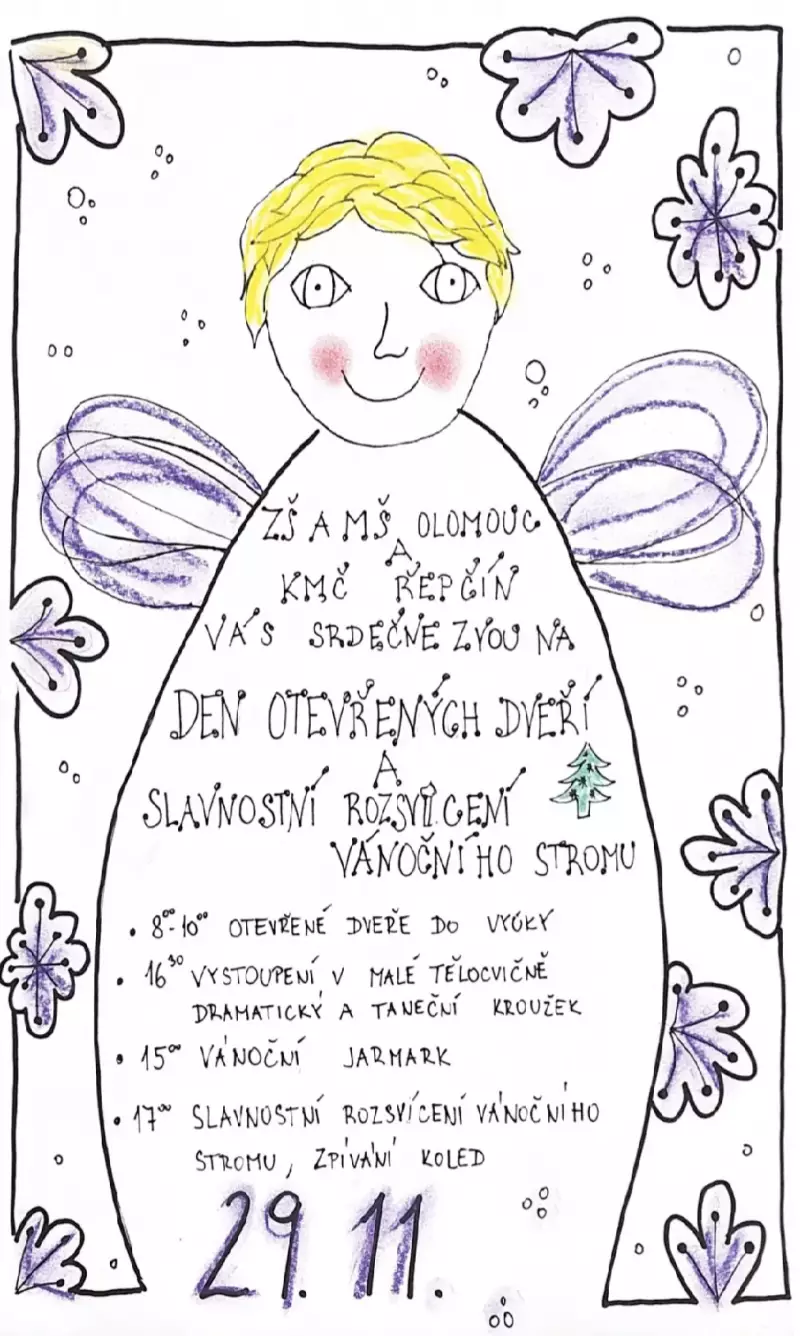 ZŠ A MŠ OLOMOUC
A
KMČ ŘEPČÍN
VÁS SRDEČNE ZVOU NA
DEN OTEVŘENÝCH DVEŘÍ
A
SLAVNOSTNÍ ROZSVÍCENÍ
VÁNOČNÍHO STROMU
• 8⁰⁰-10⁰⁰ OTEVŘENÉ DVEŘE DO VÝUKY
• 16³⁰ VYSTOUPENÍ V MALÉ TĚLOCVIČNĚ
DRAMATICKÝ A TANEČNÍ KROUŽEK
• 15⁰⁰ VÁNOČNÍ JARMARK
• 17⁰⁰ SLAVNOSTNÍ ROZSVÍCENÍ VÁNOČNÍHO
STROMU, ZPÍVÁNÍ KOLED
29. 11.